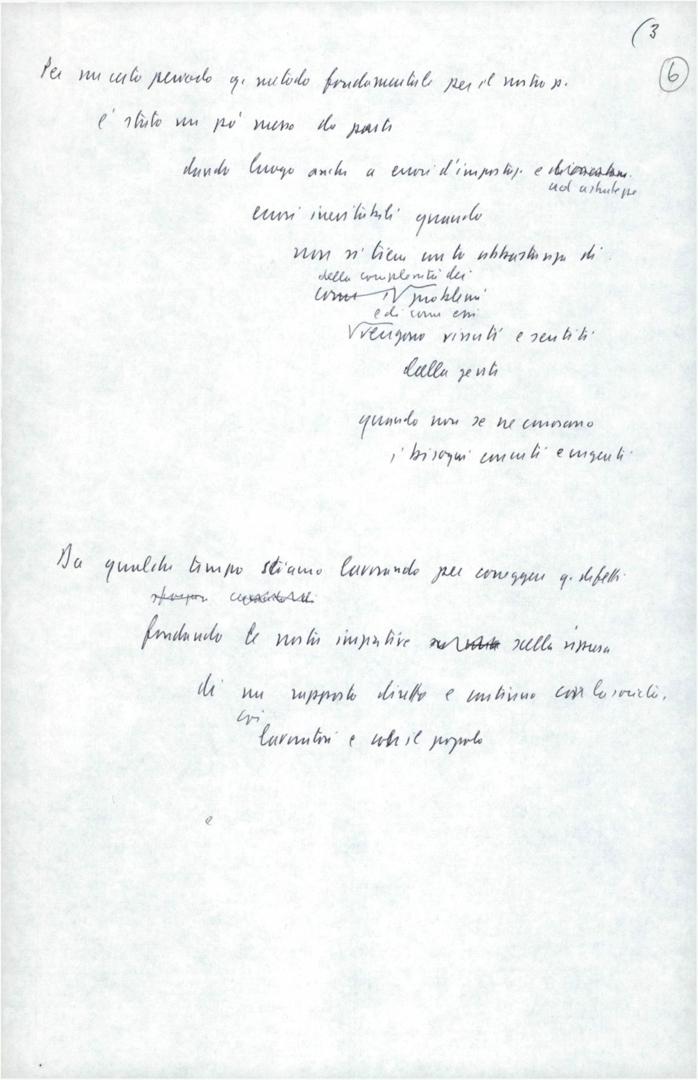 (3
6
Per un certo periodo q. metodo fondamentale per il nostro p.
è stato un po' messo da parte
dando luogo anche a errori d'impostaz. e
ad astrattezze
errori inevitabili quando
non si tiene conto abbastanza di
della complessità dei
come problemi
e di come essi
vengono vissuti e sentiti
dalla gente
quando non se ne conoscono
i bisogni concreti e urgenti
Da qualche tempo stiamo lavorando per correggere q. difetti
fondando le nostre iniziative sulla ricerca
di un rapporto diretto e continuo con la società,
coi
lavoratori e col il popolo
e